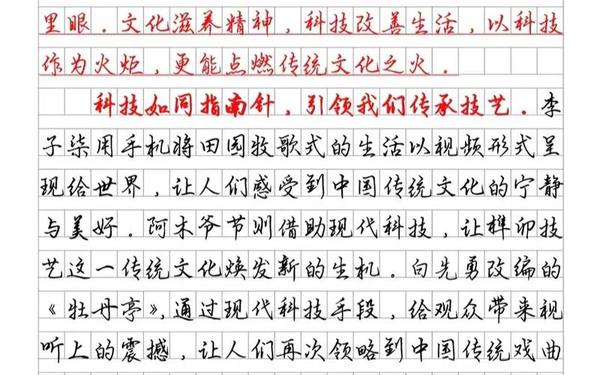 里眼．文化滋养精神，科技改善生活，以科技
作为火炬，更能点燃传统文化之火．
科技如同指南针，引领我们传承技艺．李
子柒用手机将田园牧歌式的生活以视频形式呈
现给世界，让人们感受到中国传统文化的宁静
与美好．阿木爷爷则借助现代科技，让榫卯技
艺这一传统文化焕发新的生机．白先勇改编的
《牡丹亭》，通过现代科技手段，给观众带来视
听上的震撼，让人们再次领略到中国传统戏曲